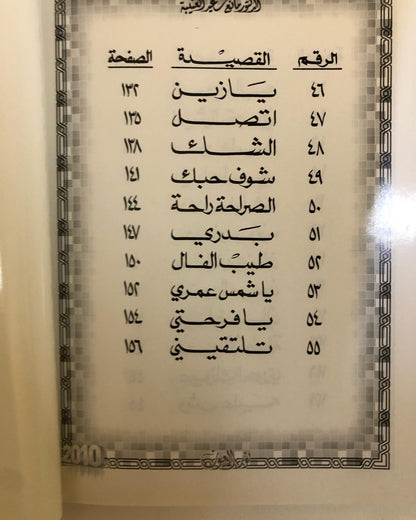 الرقم القصيدة الصفحة
٤٦ يازين ١٣٢
٤٧ اتصل ١٣٥
٤٨ الشاك ١٣٨
٤٩ شوف حبك ١٤١
٥٠ الصراحة راحة ١٤٤
٥١ بدري ١٤٧
٥٢ طيب الفال ١٥٠
٥٣ ياشمس عمري ١٥٢
٥٤ يافرحتي ١٥٤
٥٥ تلتقيني ١٥٦
2010